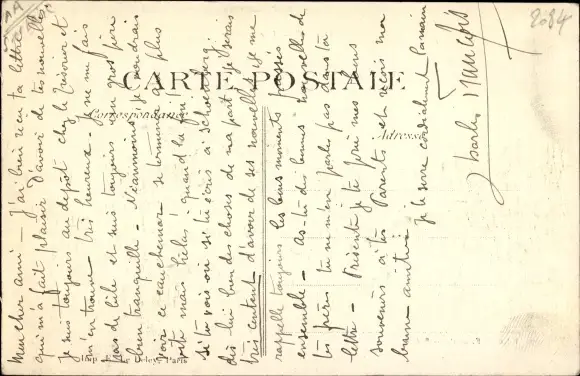 Mon cher ami – J'ai bien reçu ta lettre
qui m'a fait plaisir d'avoir de tes nouvelles
je suis toujours au dépôt chez le Trésorier et
m'en trouve très heureux – Je ne me fais
pas de bile et suis toujours mon gros père
bien tranquille – Néanmoins je voudrais
voir ce cauchemar se terminer au plus
vite mais hélas ! quand la fin
si tu vois ou si tu écris à Schoenberg
dis lui bien des choses de ma part je serais
très content d'avoir de ses nouvelles je me
rappelle toujours les bons moments passés
ensemble – As-tu des bonnes nouvelles de
tes frères tu ne m'en parles pas dans ta
lettre – Présente je te prie mes bons
souvenirs à tes Parents et reçois ma
bonne amitié
je te serre cordialement la main
Charles François
CARTE POSTALE
Correspondance
Adresse
Imp. Le Deley, Paris
2084